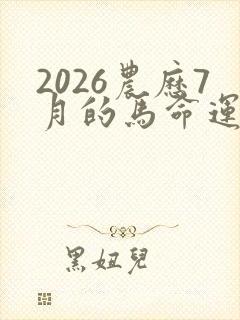 2026農歷7
月的馬命運
黑妞兒